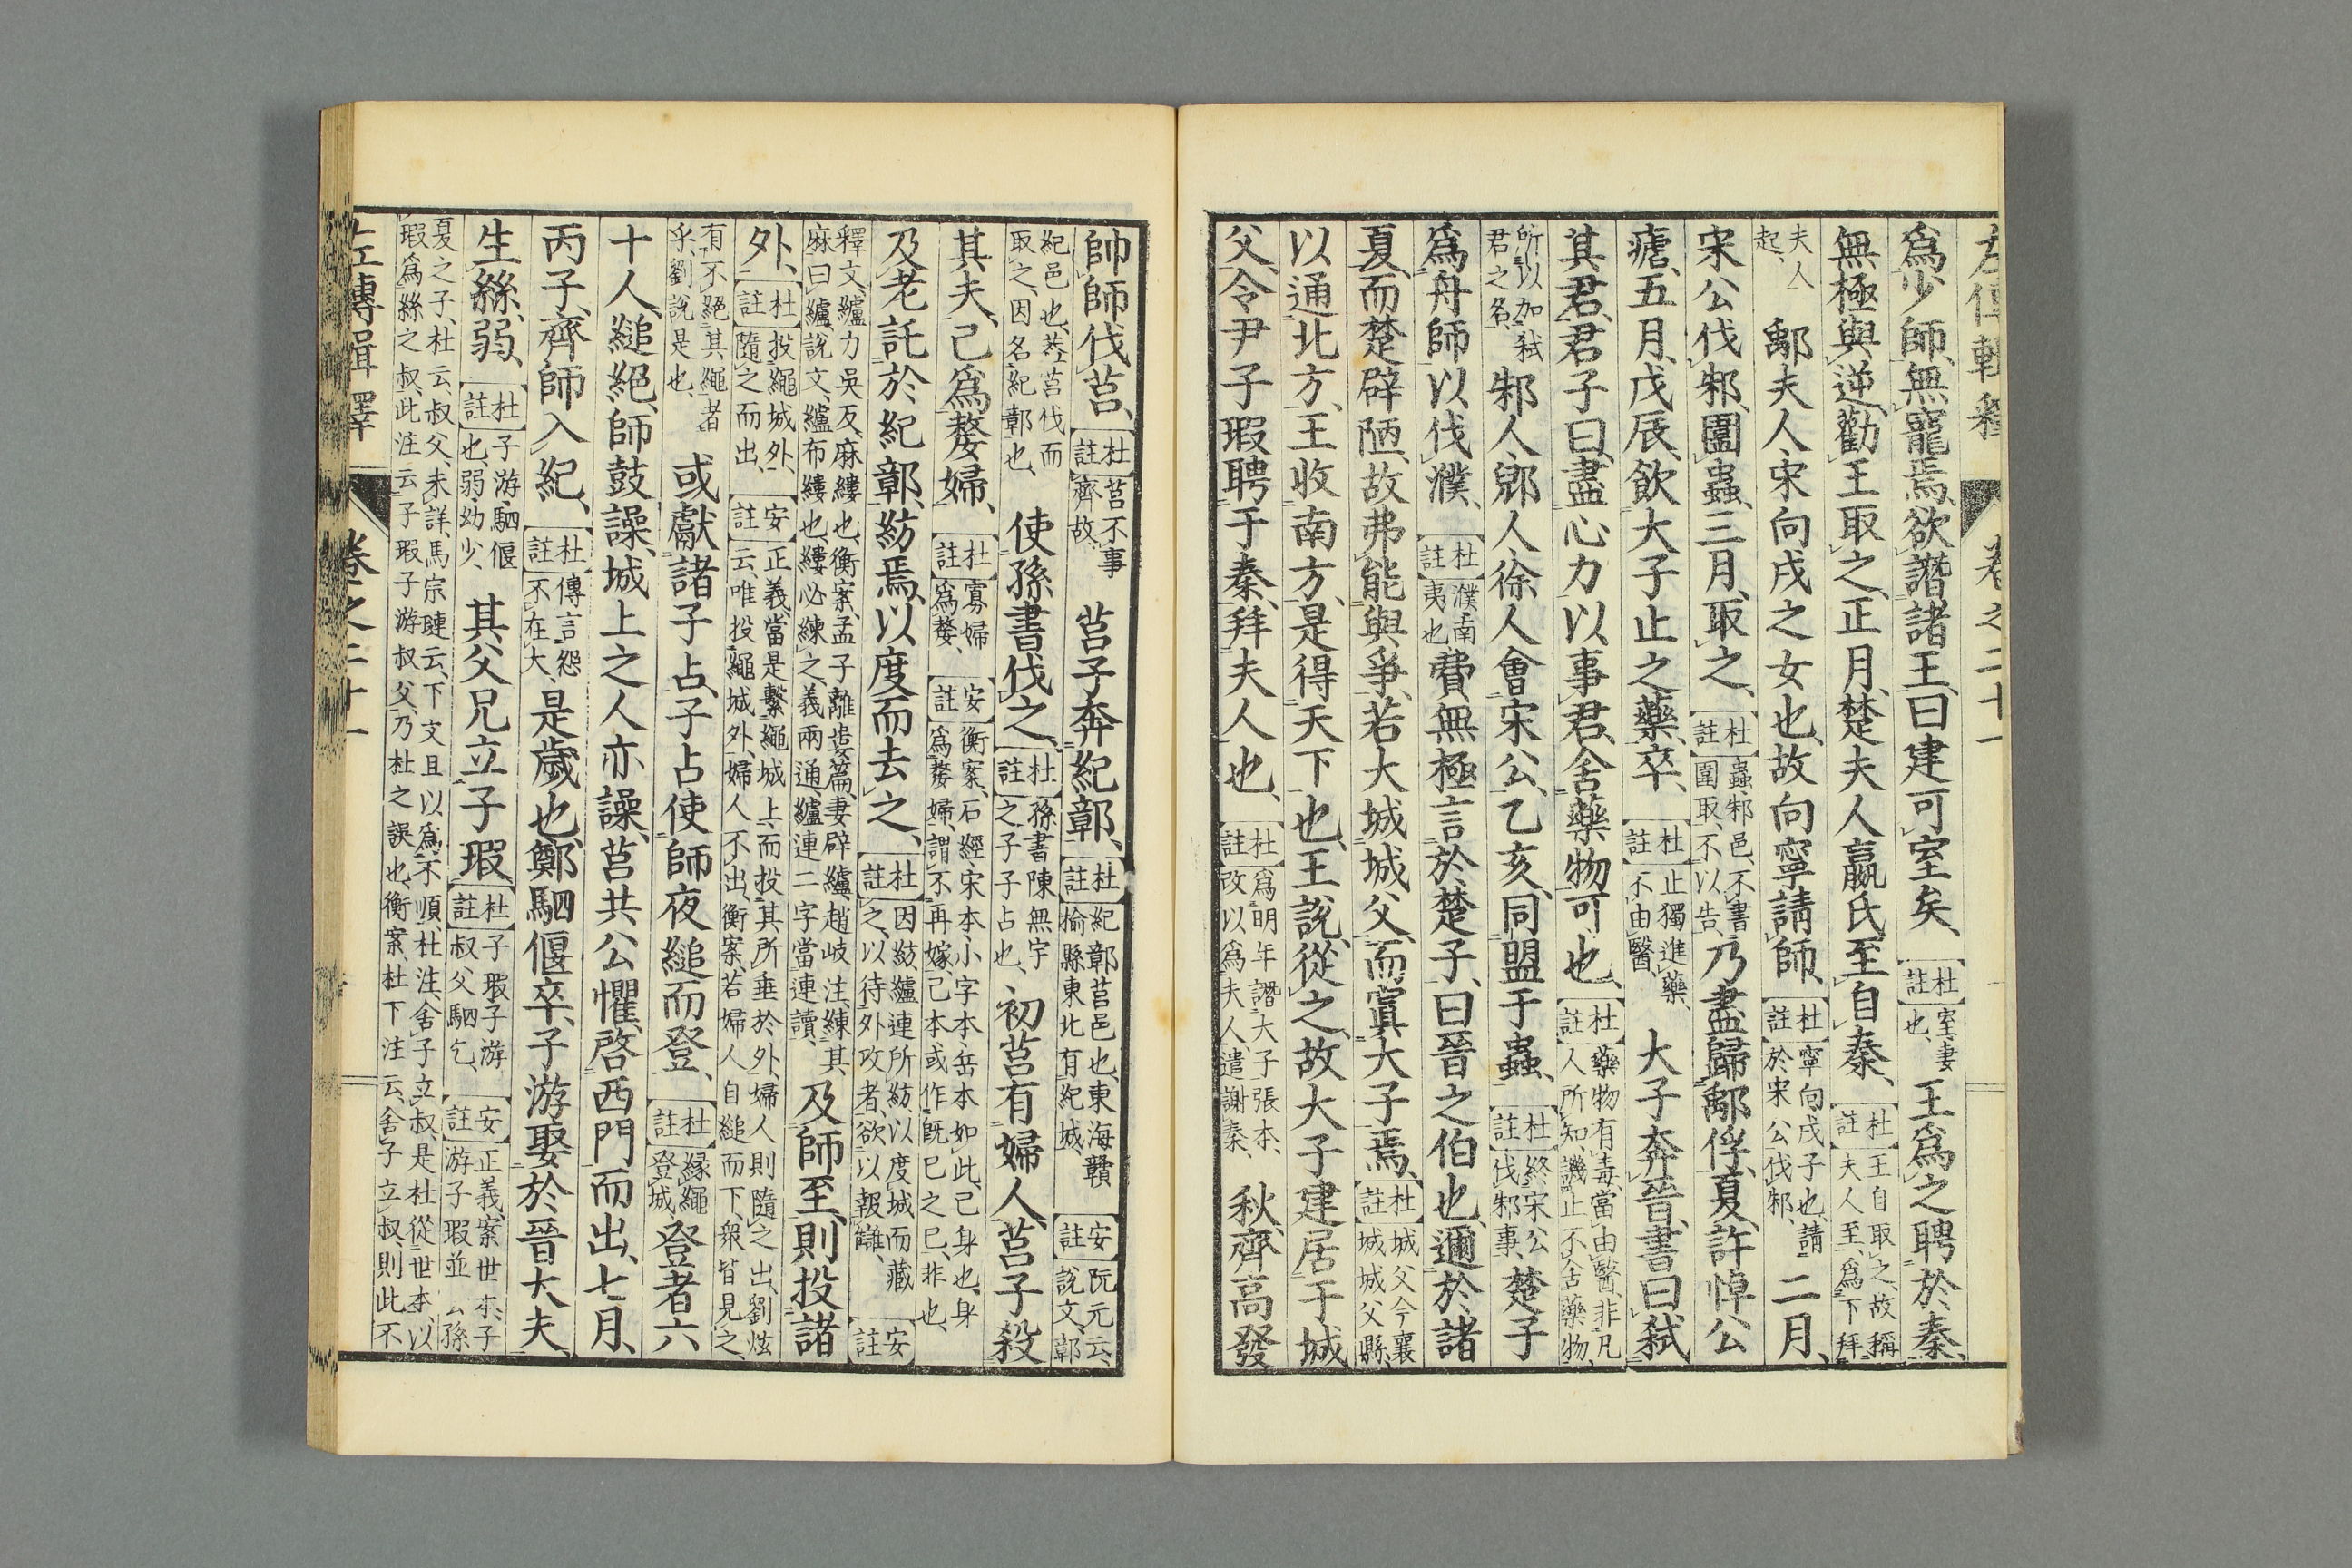 左傳輯釋 卷之二十一
爲少師、無寵焉、欲譖諸王、曰建可室矣、杜註室、妻也、王爲之聘於秦、
無極與逆、勸王取之、正月、楚夫人嬴氏至自秦、杜註王自取之、故稱夫人至、爲下拜
夫人起、鄅夫人、宋向戌之女也、故向寧請師、杜註寧向戌子也、請於宋公伐邾、二月、
宋公伐邾、圍蟲、三月、取之、杜註蟲、邾邑、不書圍取、不以告、乃盡歸鄅俘、夏、許悼公
瘧、五月、戊辰、飲大子止之藥、卒、杜註止獨進藥、不由醫、大子奔晉、書曰、弑
其君、君子曰、盡心力以事君、舍藥物可也、杜註藥物有毒、當由醫、非凡人所知、譏止不舍藥物、
所以加弑君之名、邾人、郳人、徐人會宋公、乙亥、同盟于蟲、杜註終宋公伐邾事、楚子
爲舟師以伐濮、杜註濮南夷也、費無極言於楚子、曰晉之伯也、邇於諸
夏、而楚辟陋、故弗能與爭、若大城城父、而寘大子焉、杜註城父今襄城城父縣、
以通北方、王收南方、是得天下也、王說、從之、故大子建居于城
父、令尹子瑕聘于秦、拜夫人也、杜註爲明年譖大子張本、改以爲夫人、遣謝秦、秋、齊高發
帥師伐莒、杜註莒不事齊故、莒子奔紀鄣、杜註紀鄣莒邑也、東海贛榆縣東北有紀城、安註阮元云、說文、鄣
紀邑也、莒伐而取之、因名紀鄣也、使孫書伐之、杜註孫書陳無宇之子子占也、初莒有婦人、莒子殺
其夫、己爲嫠婦、杜註寡婦爲嫠、安註衡案、石經宋本小字本、岳本如此、己身也、身爲嫠婦、謂不再嫁、己本或作既已之已、非也、
及老、託於紀鄣、紡焉、以度而去之、杜註因紡纑連所紡、以度城而藏之、以待外攻者、欲以報讎、安註
釋文、纑力吳反、麻縷也、衡案、孟子離婁篇、妻辟纑、趙岐注、練其麻曰纑、說文、纑布縷也、縷必練之、義兩通、纑連二字當連讀、及師至、則投諸
外、杜註投繩城外、隨之而出、安註正義、當是繫繩城上、而投其所垂於外、婦人則隨之出、劉炫云、唯投繩城外、婦人不出、衡案、若婦人自縋而下、衆皆見之、
有不絕其繩者乎、劉說是也、或獻諸子占、子占使師夜縋而登、杜註緣繩登城、登者六
十人、縋絕、師鼓譟、城上之人亦譟、莒共公懼、啓西門而出、七月、
丙子、齊師入紀、杜註傳言怨不在大、是歲也、鄭駟偃卒、子游娶於晉大夫、
生絲、弱、杜註子游駟偃也、弱幼少、其父兄立子瑕、杜註子瑕子游叔父駟乞、安註正義、案世本、子游子瑕並公孫
夏之子、杜云、叔父、未詳、馬宗璉云、下文且以爲不順、杜注、舍子立叔、是杜從世本、以瑕爲絲之叔、此注云、子瑕子游叔父、乃杜之誤也、衡案、杜下注云、舍子立叔、則此不
左傳輯釋 卷之二十一